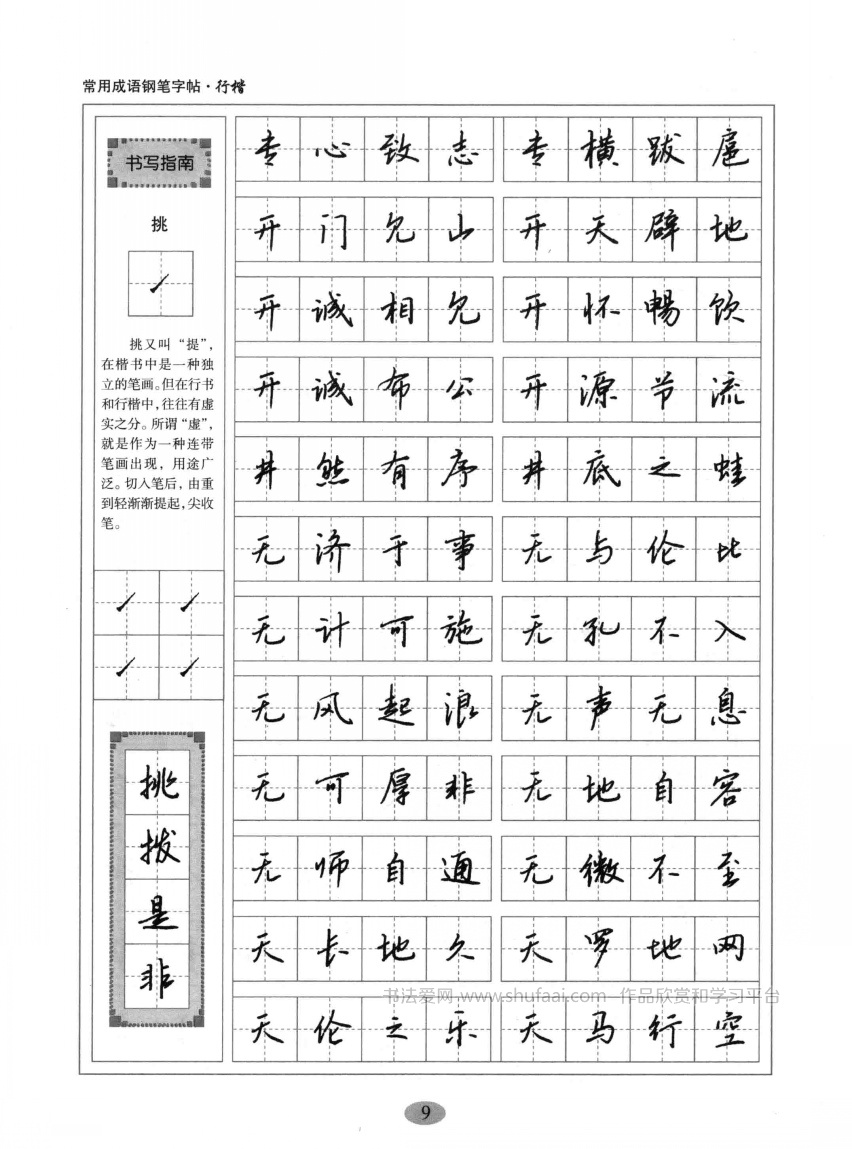 常用成语钢笔字帖·行楷
书写指南
挑
挑又叫“提”，
在楷书中是一种独
立的笔画。但在行书
和行楷中，往往有虚
实之分。所谓“虚”，
就是作为一种连带
笔画出现，用途广
泛。切入笔后，由重
到轻渐渐提起，尖收
笔。
挑拨是非
专心致志 专横跋扈
开门见山 开天辟地
开诚相见 开怀畅饮
开诚布公 开源节流
井然有序 井底之蛙
无济于事 无与伦比
无计可施 无孔不入
无风起浪 无声无息
无可厚非 无地自容
无师自通 无微不至
天长地久 天罗地网
天伦之乐 天马行空
书法爱网 www.shufaai.com 作品欣赏和学习平台
9